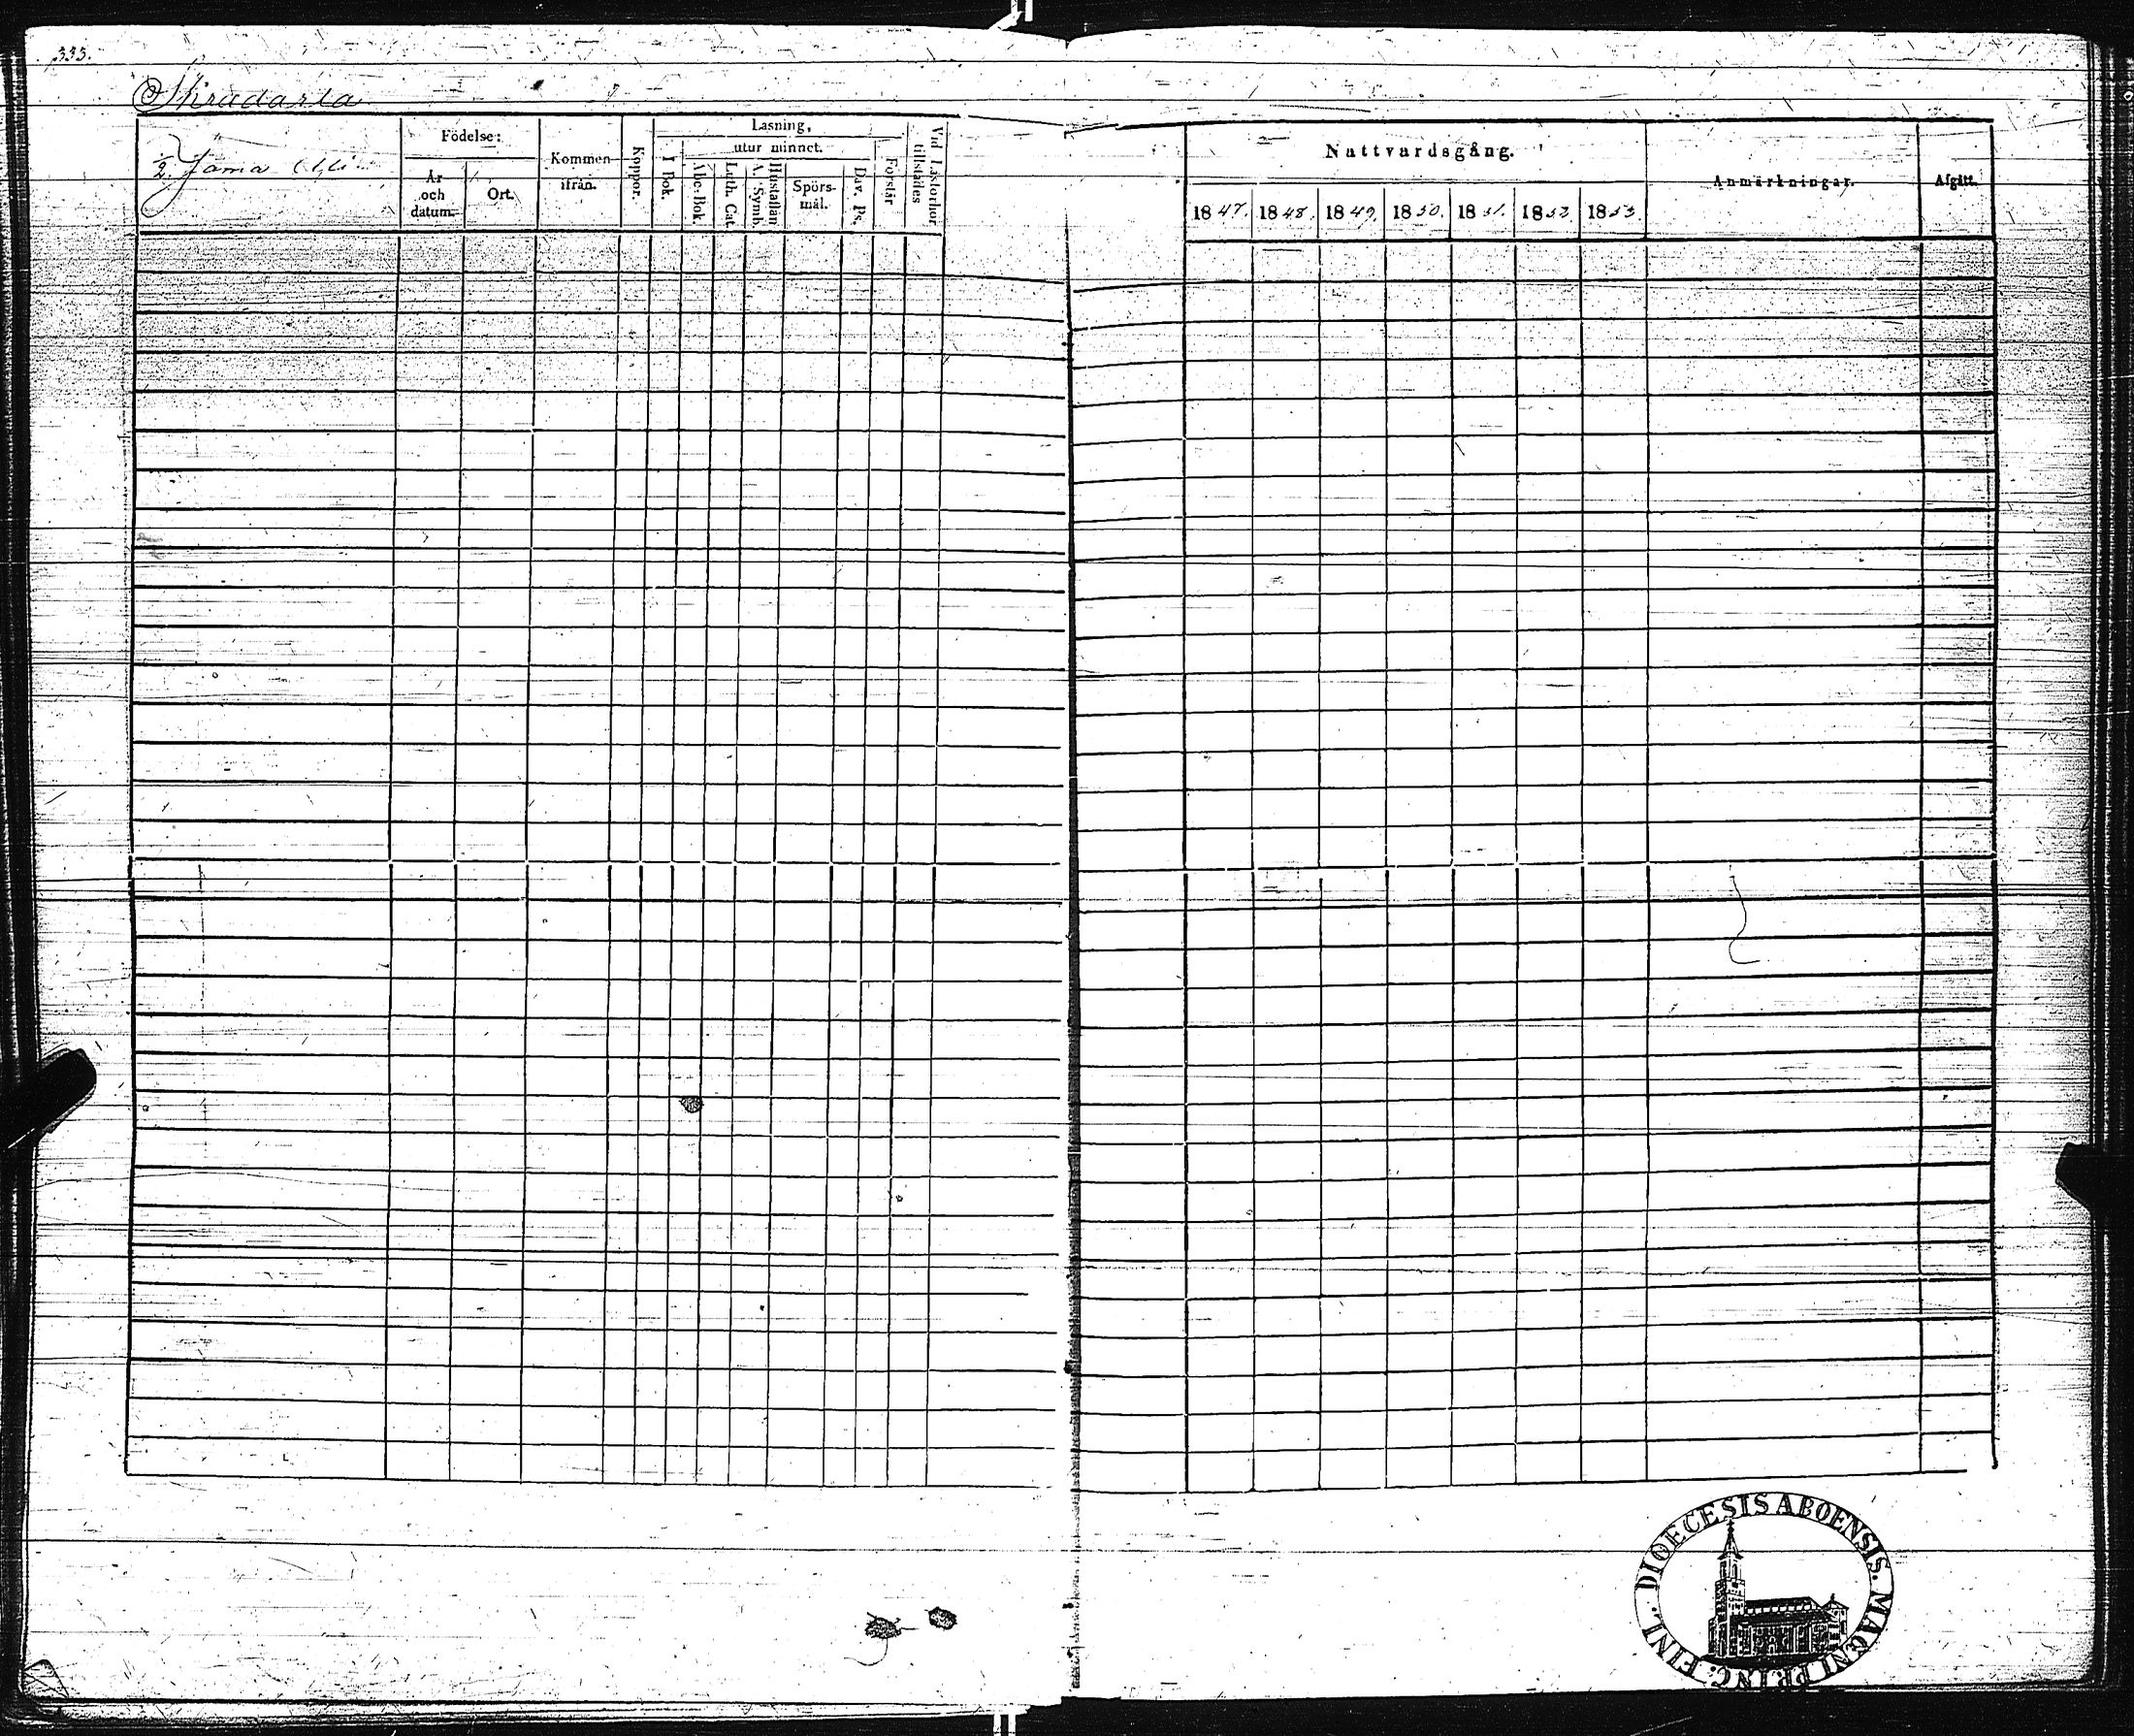 335.
Skradarla
1/2 Jama Olli
Födelse:
År och datum.
Ort.
Kommen ifrån.
Koppor.
Läsning,
I Bok.
utur minnet.
Abc-Bok.
Luth. Cat.
Hustaflan A. Symb.
Spörsmål.
Dav. Ps.
Förstår
Vid Läsförhör tillstädes
Nattvardsgång.
1847. 1848. 1849. 1850. 1851. 1852. 1853.
Anmärkningar.
Afgått.
DIOECESIS ABOENSIS. MAGNI PRINC: FINL.